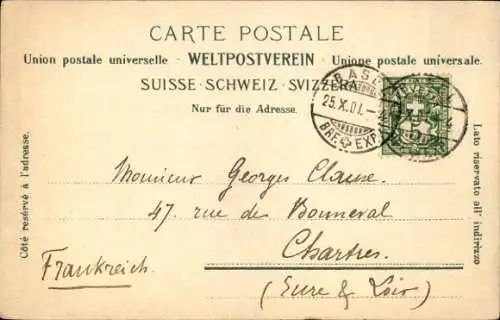 CARTE POSTALE
Union postale universelle · WELTPOSTVEREIN · Unione postale universale.
SUISSE · SCHWEIZ · SVIZZERA
Nur für die Adresse.
25.X.01.
BRF. EXP.
Côté réservé à l'adresse.
Lato riservato all' indirizzo
Monsieur Georges Clause.
47. rue de Bonneval
Chartres.
Frankreich.
(Eure & Loir)